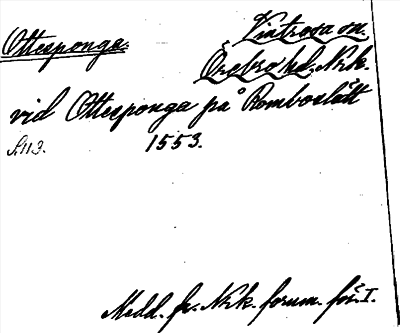 Ottesponga.
Vintrosa sn.
Örebro hd, Nrk.
vid Ottesponga på Romboslätt
S. 113. 1553.
Medd. fr. Nrk. fornm. för. I.